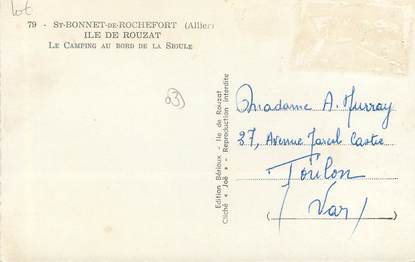 79 - St-BONNET-DE-ROCHEFORT (Allier)
ILE DE ROUZAT
LE CAMPING AU BORD DE LA SIOULE
Edition Bérioux - Ile de Rouzat
Cliché « Joë » - Reproduction interdite
Madame A. Murray
37, Avenue Marcel Castié
Toulon
(Var)